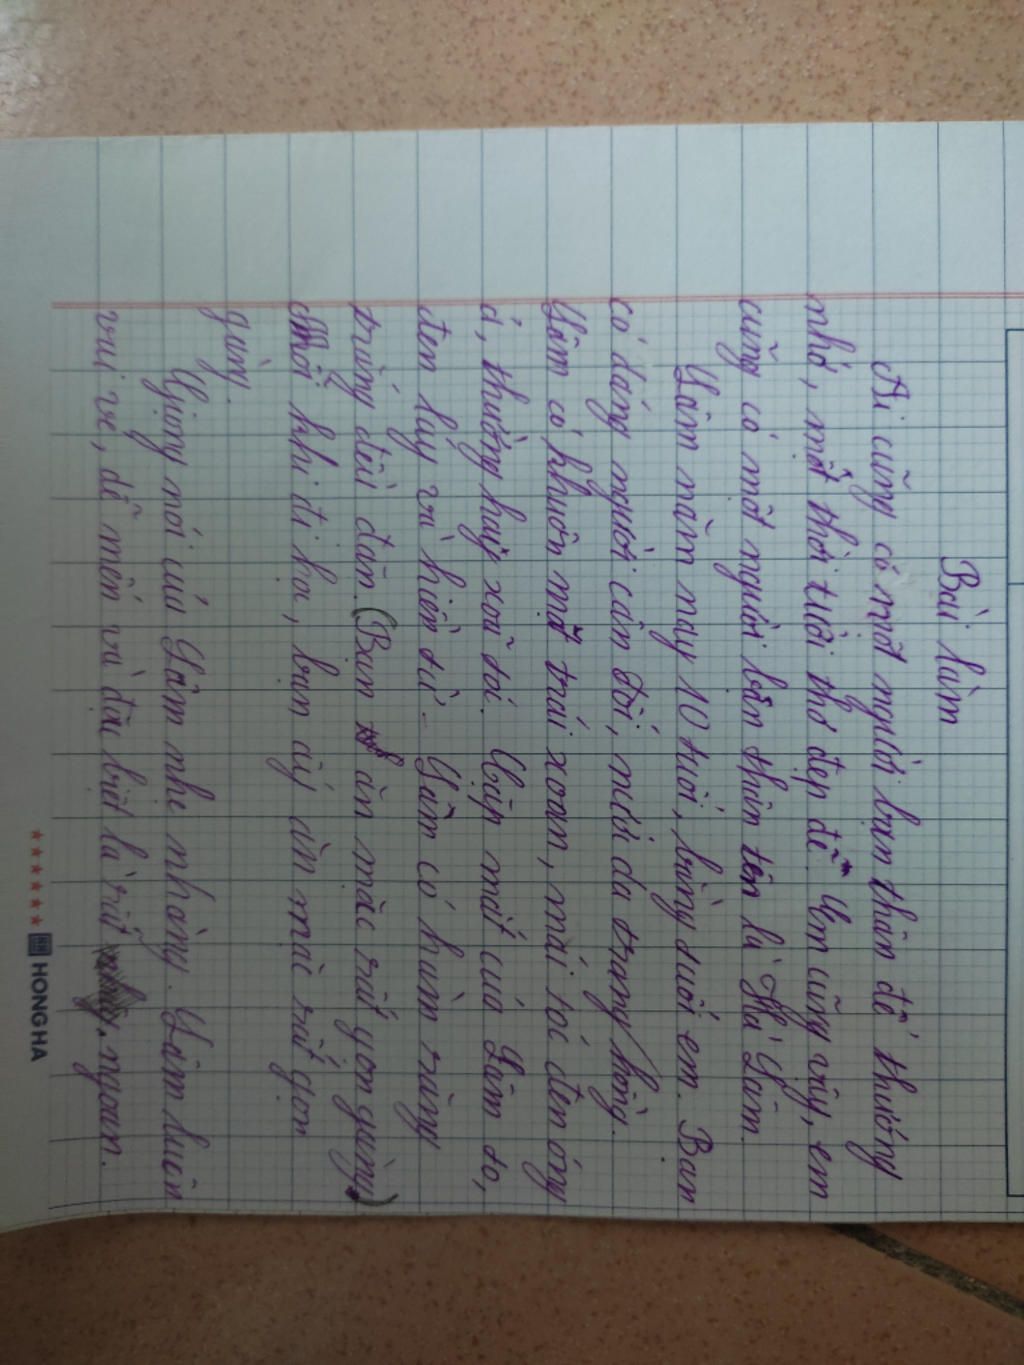 Bài làm
Ai cũng có một người bạn thân để thương
nhớ, một thời tuổi thơ đẹp đẽ. Em cũng vậy, em
cũng có một người bạn thân tên là Hà Lâm.
Lâm năm nay 10 tuổi, bằng tuổi em. Bạn
có dáng người cân đối, nước da trắng hồng.
Lâm có khuôn mặt trái xoan, mái tóc đen óng
ả, thường hay xoã tóc. Cặp mắt của Lâm to,
đen láy và hiền từ. Lâm có hàm răng
trắng đều đặn. (Bạn ăn mặc rất gọn gàng)
Mỗi khi đi học, bạn ấy ăn mặc rất gọn
gàng.
Giọng nói của Lâm nhẹ nhàng. Lâm luôn
vui vẻ, dễ mến và đặc biệt là rất ngoan.
HONG HA